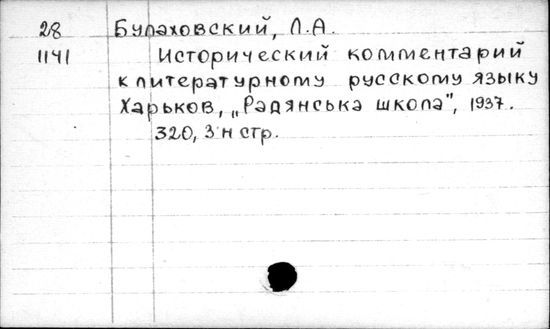 28 Булаховский, Л.А.
1141 Исторический комментарий
к литературному русскому языку
Харьков, „Радянська школа", 1937.
320, 3 н стр.